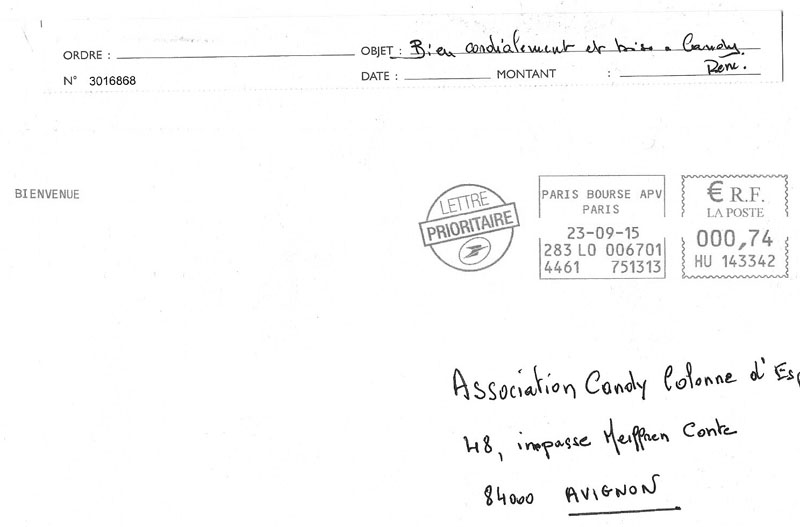 ORDRE : OBJET : Bien cordialement et bise a Candy.
René.
N° 3016868 DATE : MONTANT :
BIENVENUE
LETTRE
PRIORITAIRE
PARIS BOURSE APV
PARIS
23-09-15
283 L0 006701
4461 751313
€ R.F.
LA POSTE
000,74
HU 143342
Association Candy Colonne d'Es
48, impasse Meiffren Conte
84000 AVIGNON